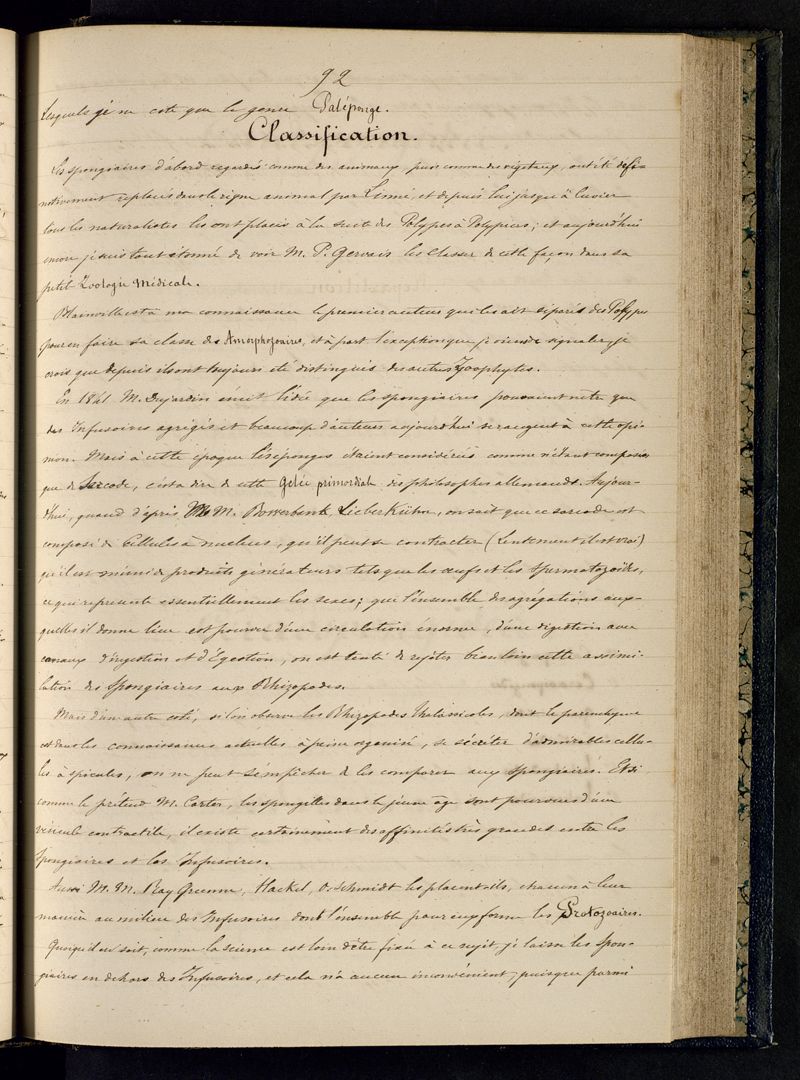 92
Lesquels je ne cite que le genre Paléponge.
Classification.
Les spongiaires d'abord regardés comme des animaux, puis comme des végétaux, ont été défi-
nitivement replacés dans le règne animal par Linné, et depuis lui jusqu'à Cuvier
tous les naturalistes les ont placés à la suite des Polypes à Polypiers; et aujourd'hui
encore je suis tout étonné de voir M. P. Gervais les classer de cette façon dans sa
petite Zoologie Médicale.
Blainville est à ma connaissance le premier auteur qui les ait séparés des Polypes
pour en faire sa classe des Amorphozoaires, et à part l'exception que je viens de signaler, je
crois que depuis ils ont toujours été distingués des autres Zoophytes.
En 1841 M. Dujardin émit l'idée que les spongiaires pouvaient n'être que
des Infusoires agrégés et beaucoup d'auteurs aujourd'hui se rangent à cette opi-
nion. Mais à cette époque les éponges étaient considérées comme n'étant composées
que de Sarcode, c'est a dire de cette Gelée primordiale des philosophes allemands. Aujour-
d'hui, quand d'après M. M. Bowerbank, Lieberkühn, on sait que ce sarcode est
composé de Cellules à nucleus, qu'il peut se contracter (Lentement il est vrai)
qu'il est muni de produits générateurs tels que les œufs et les Spermatozoïdes,
ce qui représente essentiellement les sexes; que l'ensemble des agrégations aux-
quelles il donne lieu est pourvu d'une circulation énorme, d'une digestion avec
canaux d'ingestion et d'égestion, on est tenté de rejeter bien loin cette assimi-
lation des Spongiaires aux Rhizopodes.
Mais d'un autre coté, si l'on observe les Rhizopodes thalassicoles, dont le parenchyme
est dans les connaissances actuelles à peine organisé, se sécréter d'admirables cellu-
les à spicules, on ne peut s'empêcher de les comparer aux Spongiaires. Et si
comme le prétend M. Carter, les spongilles dans le jeune âge sont pourvues d'une
vésicule contractile, il existe certainement des affinités très grandes entre les
Spongiaires et les Infusoires.
Aussi M. M. Ray Greenne, Hackel, O. Schmidt les placent-ils, chacun à leur
manière au milieu des Infusoires dont l'ensemble pour eux forme les Protozoaires.
Quoiqu'il en soit, comme la science est loin d'être fixée à ce sujet, je laisse les Spon-
giaires en dehors des Infusoires, et cela n'a aucun inconvénient, puisque parmi